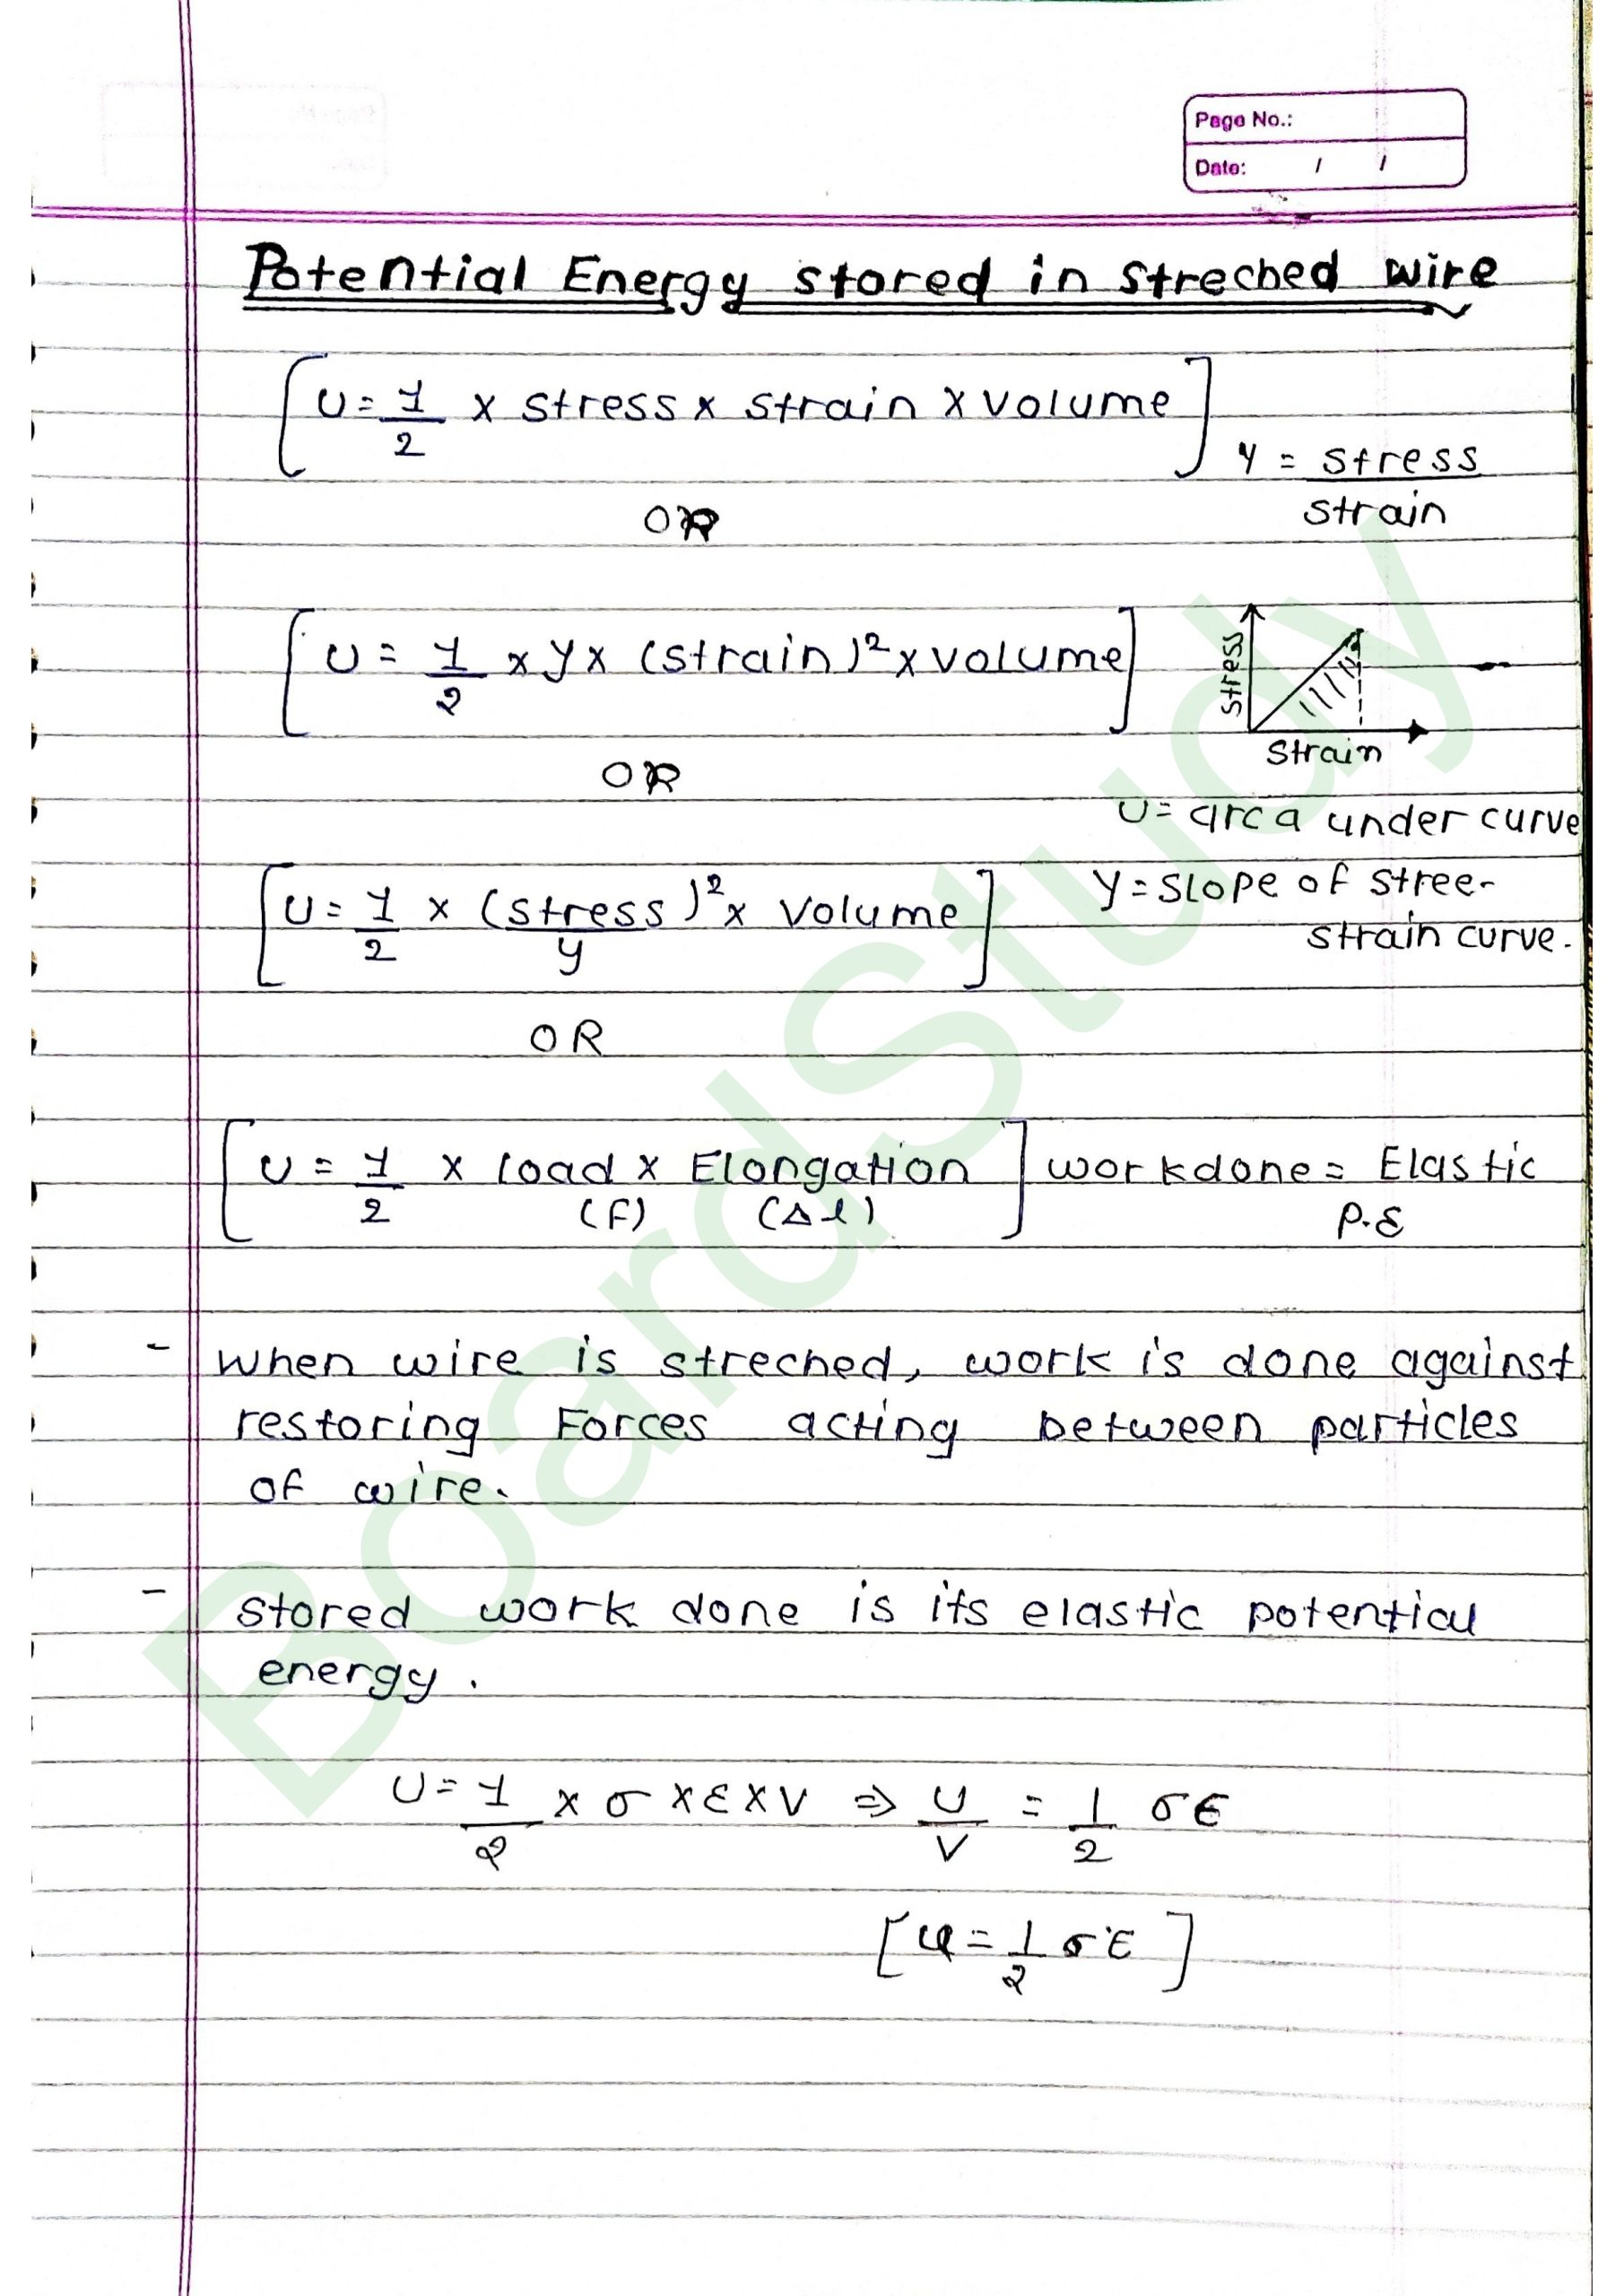 Page No.:
Date: / /
Potential Energy stored in streched wire
[U = 1/2 x stress x strain x volume]
Y = stress/strain
OR
[U = 1/2 x y x (strain)² x volume]
Stress
Strain
OR
U = area under curve
[U = 1/2 x (stress)²/y x volume]
Y = slope of stree-
strain curve.
OR
[U = 1/2 x load x Elongation] workdone = Elastic
(F) (Δl) P.E
- when wire is streched, work is done against
restoring Forces acting between particles
of wire.
- stored work done is its elastic potential
energy.
U = 1/2 x σ x ε x V ⇒ U/V = 1/2 σε
[u = 1/2 σε]
BoardStudy